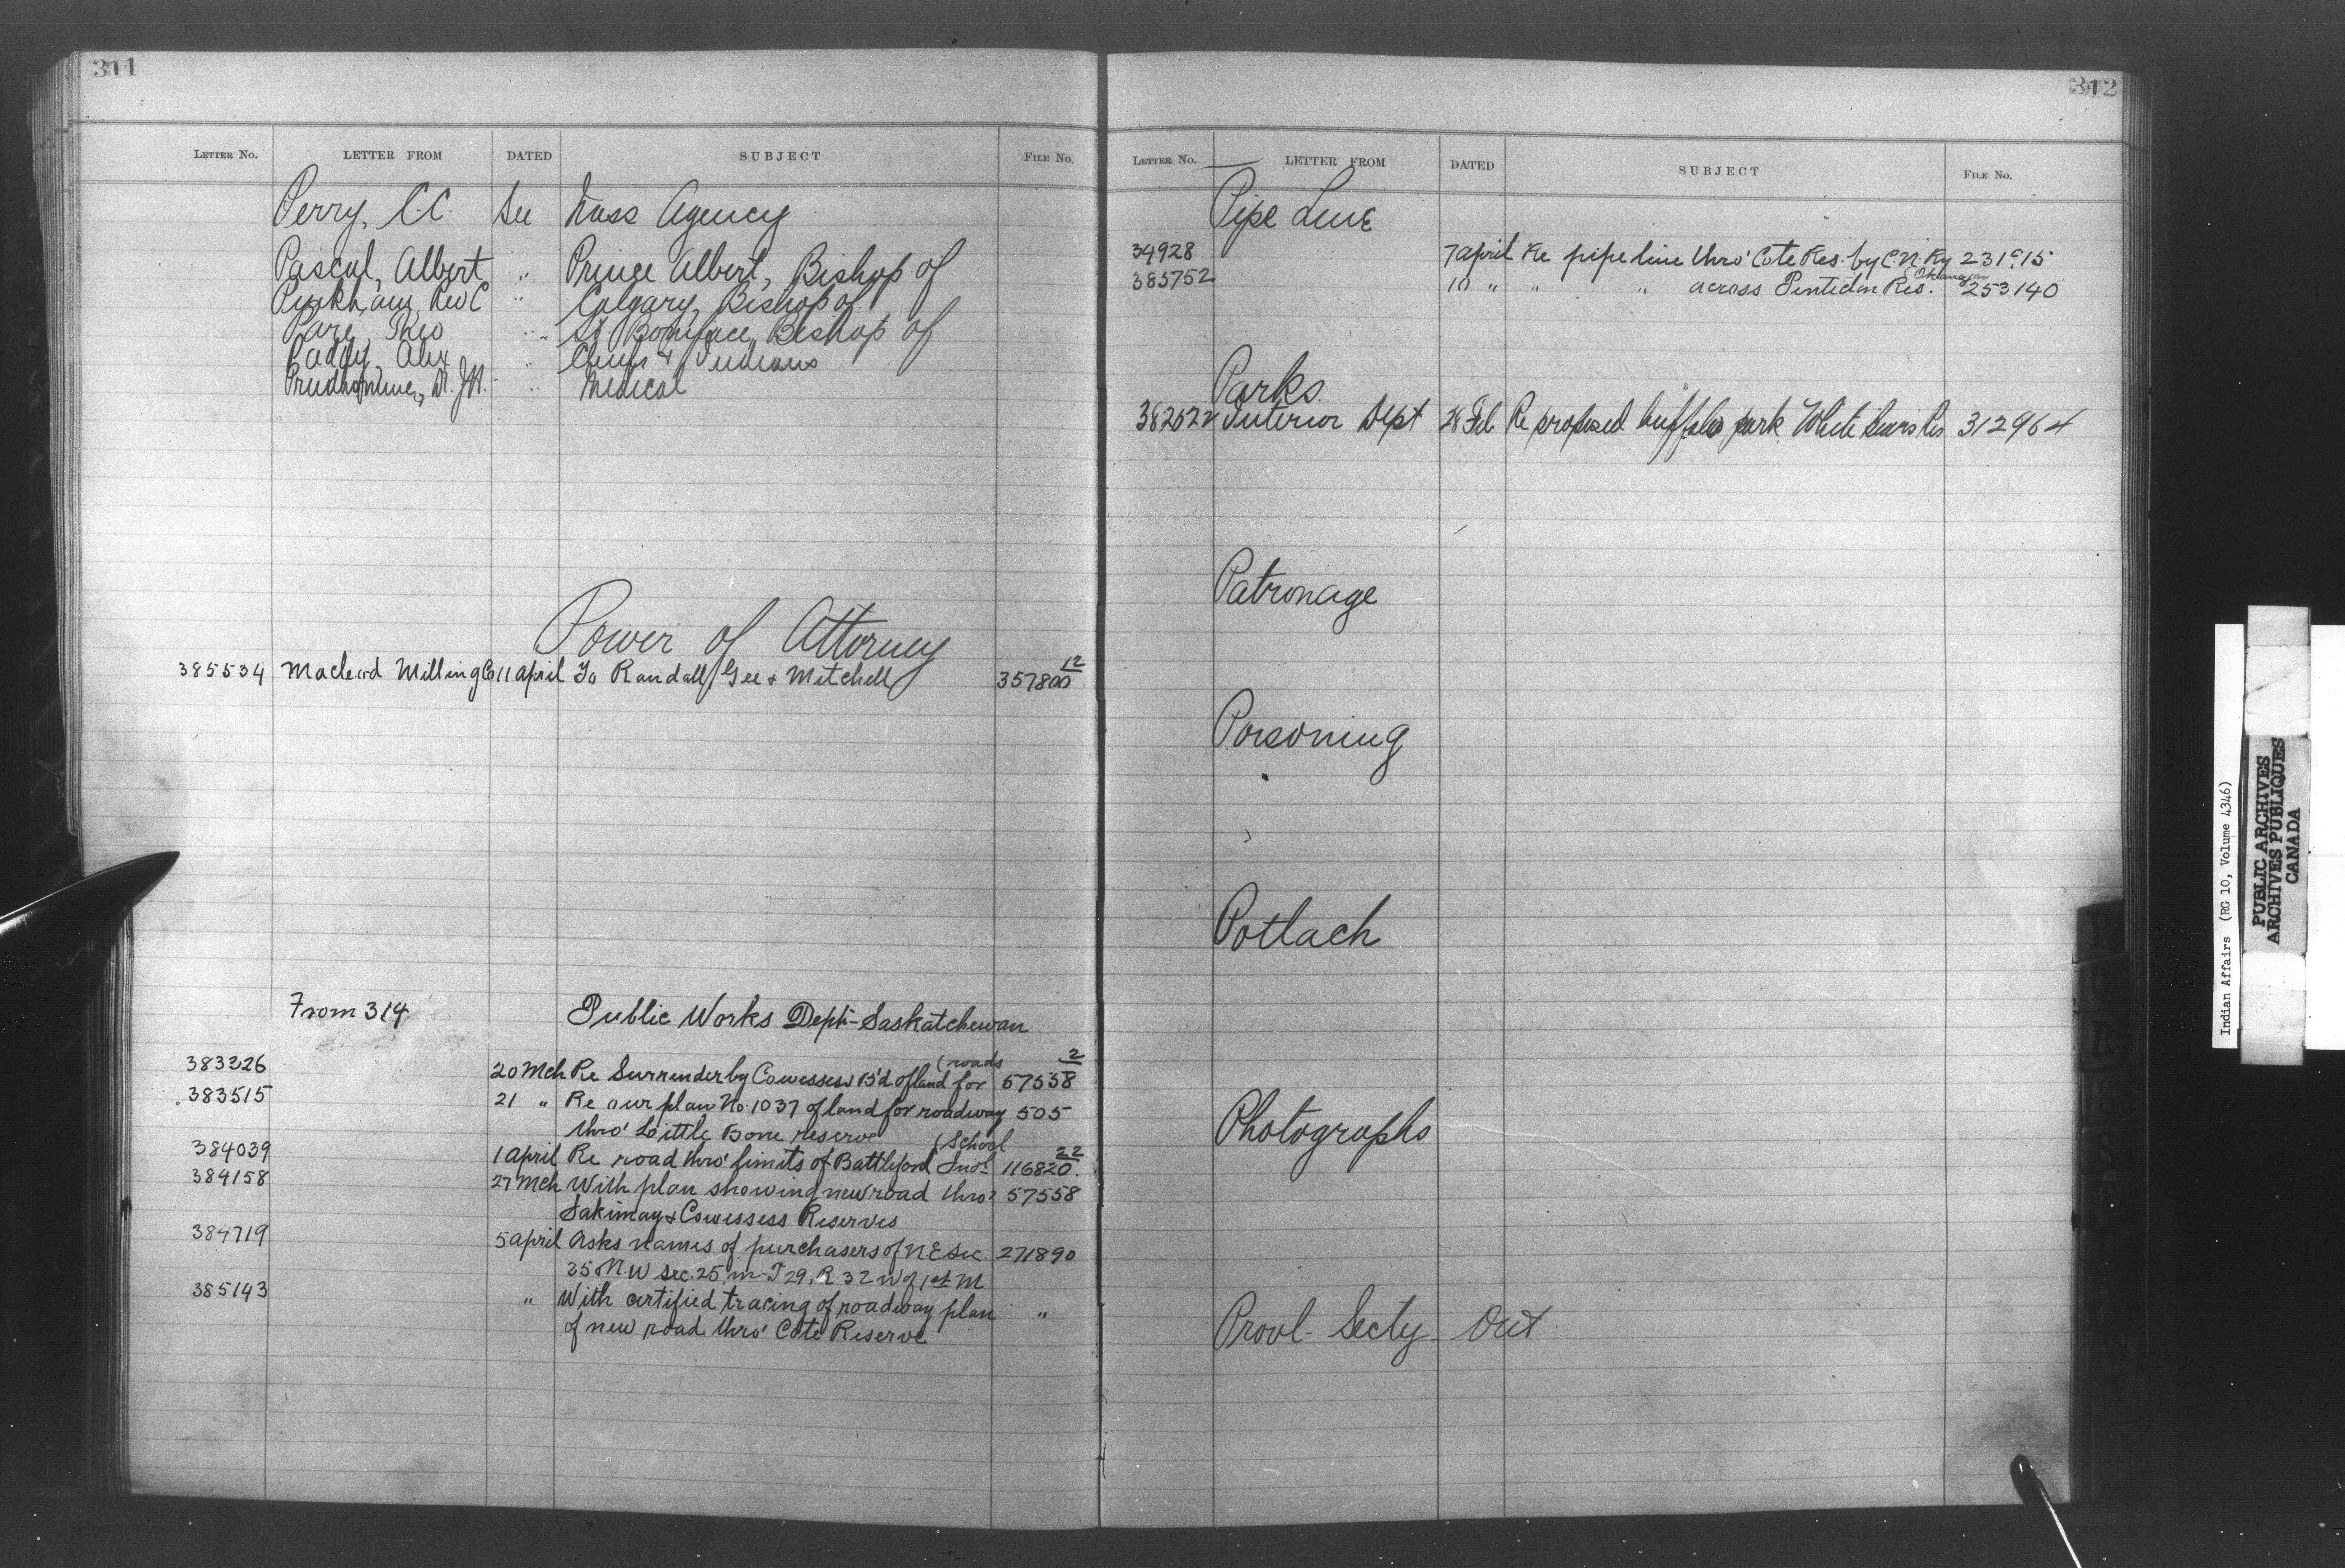 311
LETTER No. LETTER FROM DATED SUBJECT FILE No.
Perry, C.C. See Nass Agency
Pascal, Albert " Prince Albert, Bishop of
Pinkham, Rev C " Calgary, Bishop of
Pare, Theo " St Boniface, Bishop of
Paddy, Alex " Chiefs & Indians
Prudhomme, Dr. J.A. " Medical
Power of Attorney
385534 Macleod Milling Co 11 April To Randall, Gee & Mitchell 357800 12
From 314 Public Works Dept - Saskatchewan
383226 20 Mch Re Surrender by Cowessess B'd of land for (roads 57558 2
383515 21 " Re our plan No. 1037 of land for roadway 505
thro' Little Bone reserve
384039 1 April Re road thro' limits of Battleford Indl. (School 116820. 22
384158 27 Mch With plan showing new road thro' 57558
Sakimay & Cowessess Reserves
384719 5 April Asks names of purchasers of N.E Sec. 271890
25 N.W sec. 25, in T 29, R 32 W of 1st M
385143 " With certified tracing of roadway plan "
of new road thro' Cote Reserve
312
LETTER No. LETTER FROM DATED SUBJECT FILE No.
Pipe Line
34928 7 April Re pipe line thro' Cote Res. by C.N. Ry 231915
385752 10 " " " across Penticton Res. Okanagan 253140
Parks.
382522 Interior Dept 28 Feb Re proposed buffalo park White Bears Res 312964
Patronage
Poisoning
Potlach
Photographs
Provl- Secty Out
P
Q
R
S
T
Indian Affairs (RG 10, Volume 4346)
PUBLIC ARCHIVES
ARCHIVES PUBLIQUES
CANADA